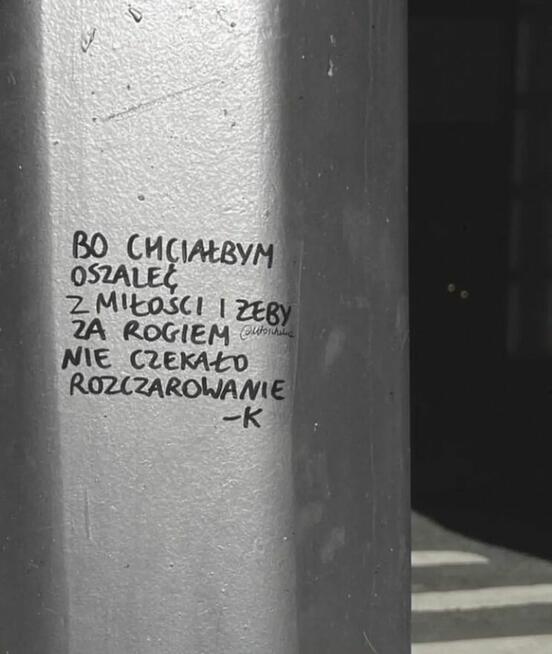 BO CHCIAŁBYM
OSZALEĆ
Z MIŁOŚCI I ŻEBY
ZA ROGIEM
NIE CZEKAŁO
ROZCZAROWANIE
-K